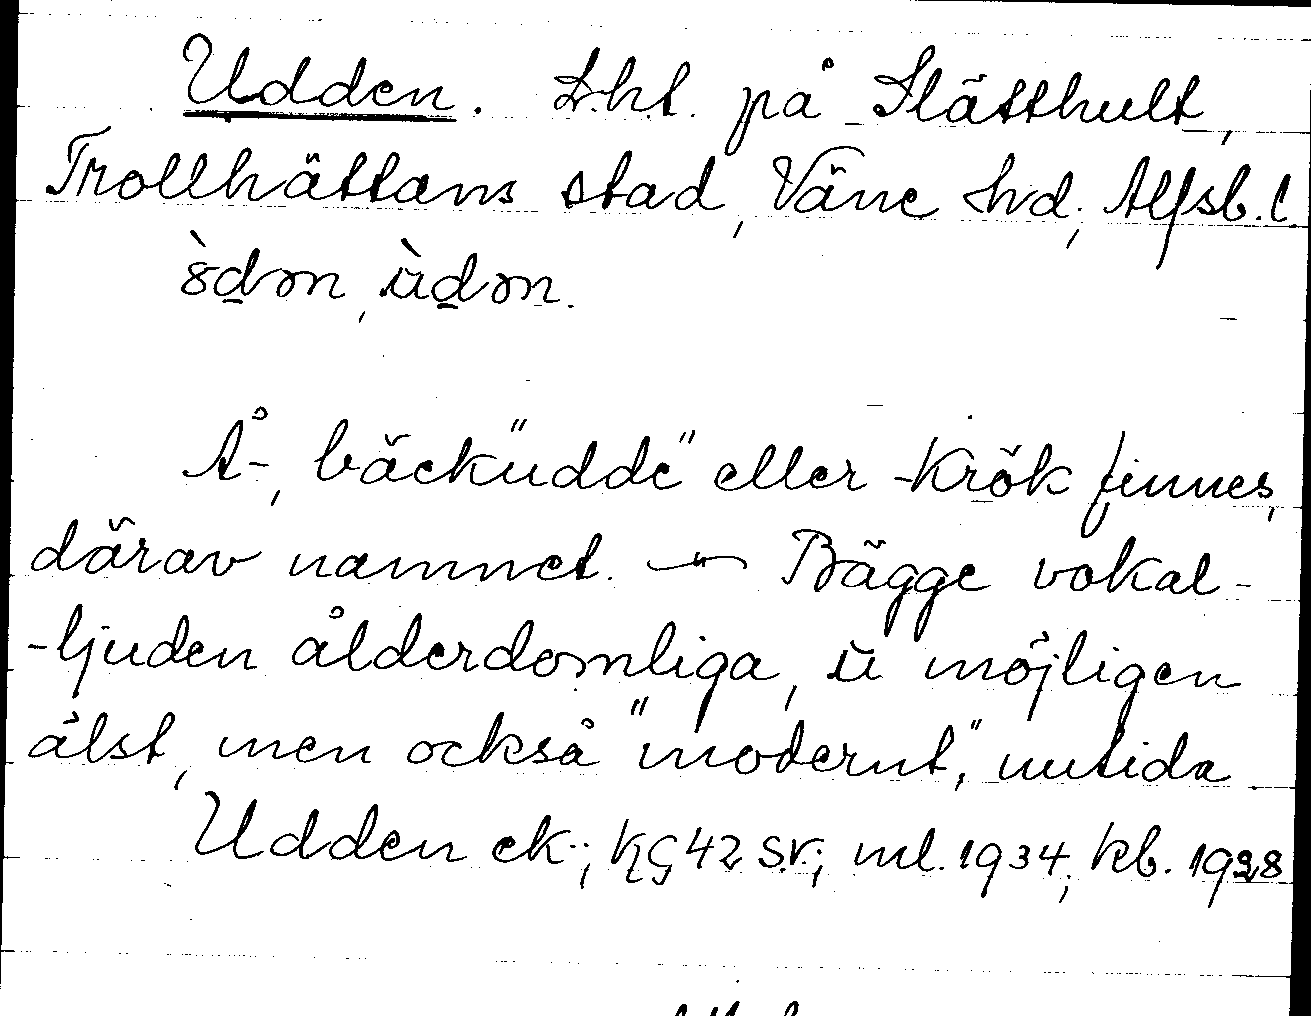 Udden. L.h.t. på Slätthult,
Trollhättans stad, Väne hd, Älfsb. l.
ꝏ̀dən, ùdən.
Å-, bäck"udde" eller -krök finnes,
därav namnet. — " — Bägge vokal-
-ljuden ålderdomliga, ù möjligen
älst, men också "modernt," nutida
Udden ek.; KG 42 S.V.; ml. 1934; kb. 1928